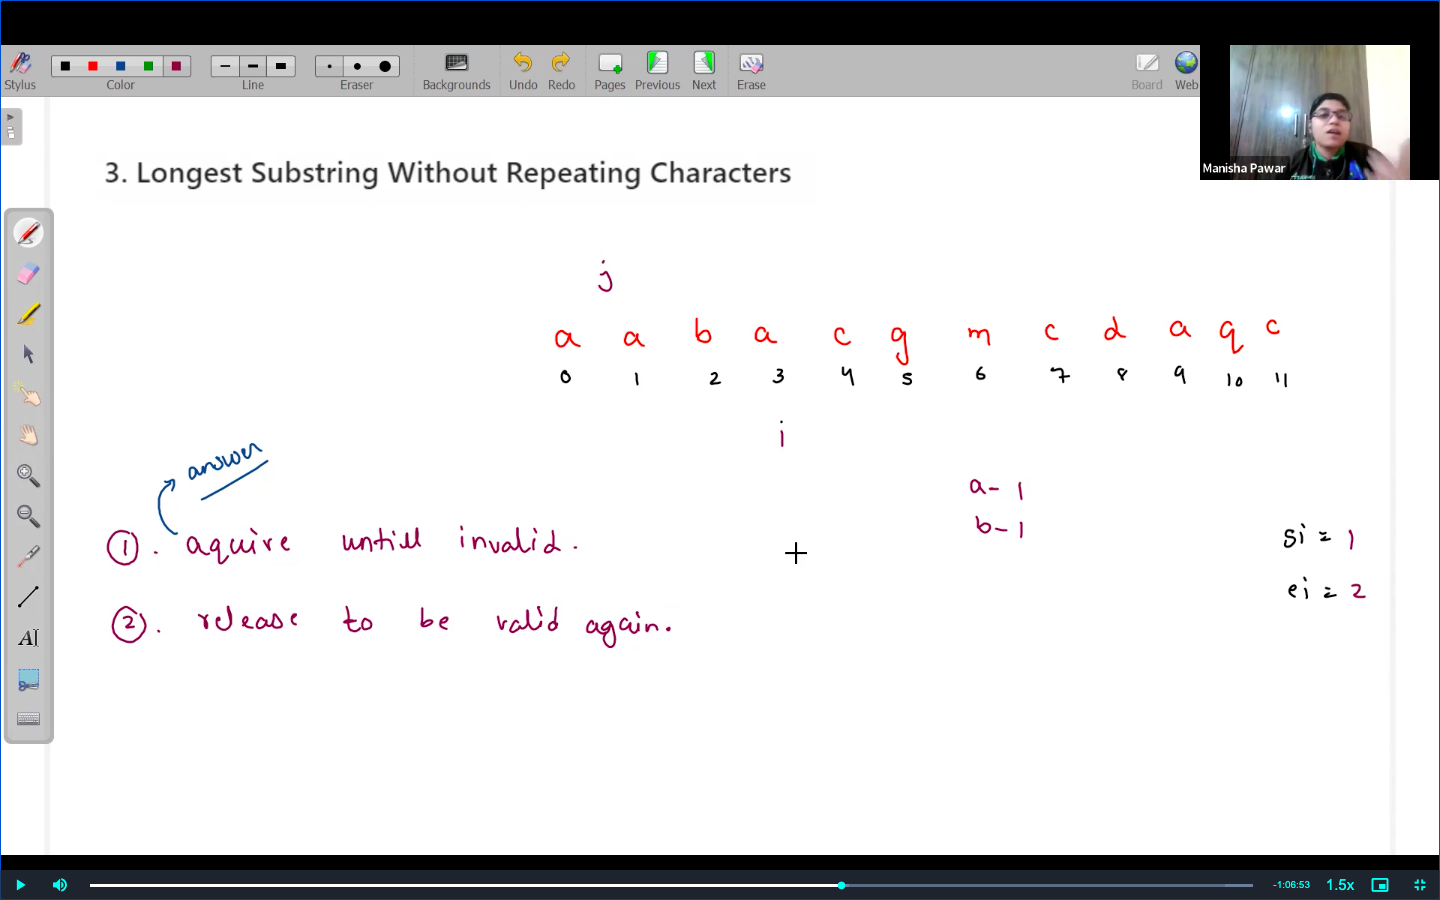 Stylus Color Line Eraser Backgrounds Undo Redo Pages Previous Next Erase Board Web
Manisha Pawar
3. Longest Substring Without Repeating Characters
j
a a b a c g m c d a q c
0 1 2 3 4 5 6 7 8 9 10 11
i
answer
a- 1
b- 1
1. aquire untill invalid.
si = 1
ei = 2
2. release to be valid again.
AI
-1:06:53 1.5x